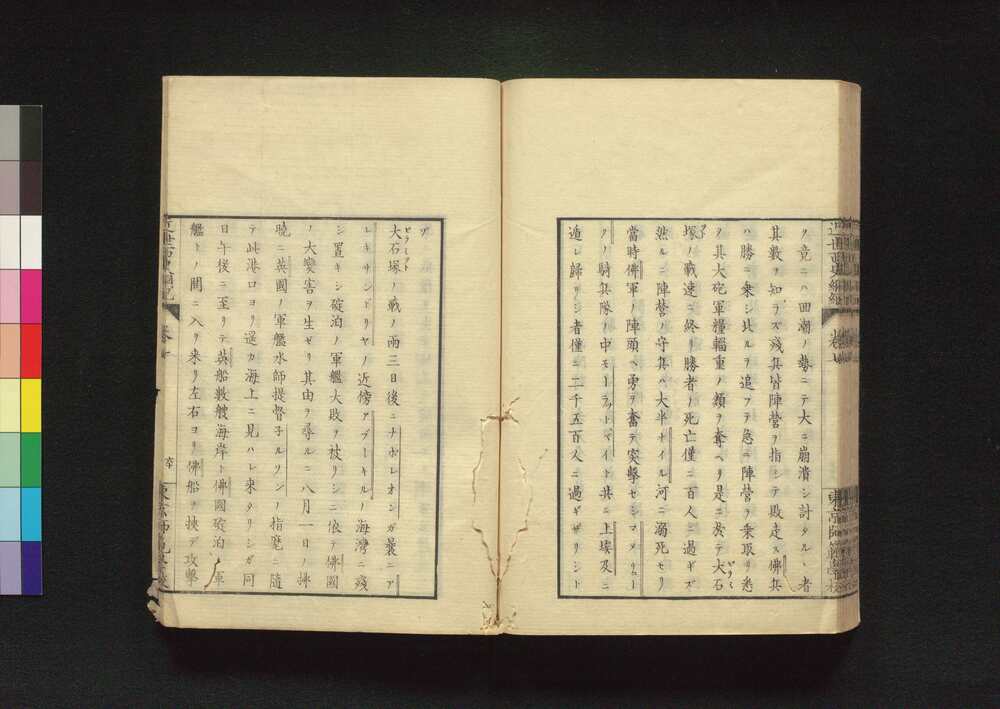 ク竟ニハ回潮ノ勢ニテ大ニ崩潰シ討タルヽ者
其數ヲ知ラズ殘兵皆陣營ヲ指シテ敗走ス佛兵
ハ勝ニ乗シ北ルヲ追フテ急ニ陣營ヲ乗取リ悉
ク其大砲軍糧輜重ノ類ヲ奪ヘリ是ニ於テ大石
塚ノ戰速ニ終リ勝者ノ死亡僅ニ二百人ニ過ギズ
然ルニ陣營ノ守兵ハ大半ナイル河ニ溺死セリ
當時佛軍ノ陣頭ヘ勇ヲ奮テ突撃セシマメリュー
クノ騎兵隊ノ中モーラットマイト共ニ上埃及ニ
遁レ歸リシ者僅ニ二千五百人ニ過ギザリシト
ゾ
大石塚ノ戰ノ両三日後ニナポレオンガ曩ニア
レキサンドリヤノ近傍アブーキルノ海灣ニ殘
シ置キシ碇泊ノ軍艦大敗ヲ被リシニ依テ佛國
ノ大變害ヲ生ゼリ其由ヲ尋ルニ八月一日ノ拂
曉ニ英國ノ軍艦水師提督子ルソンノ指麾ニ隨
テ此港口ヨリ遥カ海上ニ見ハレ來タリシガ同
日午後ニ至リテ英船數艘海岸ト佛國碇泊ノ軍
艦トノ間ニ入リ来リ左右ヨリ佛船ヲ挾デ攻撃